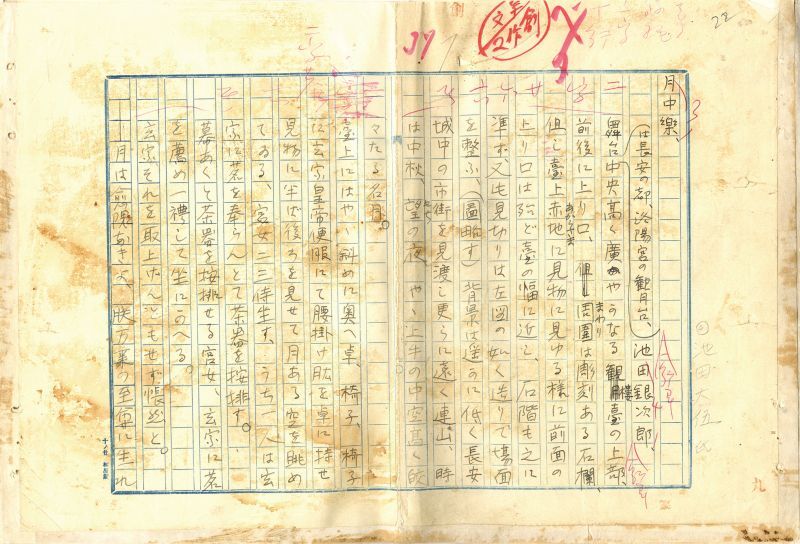 月中樂
池田銀次郎
(は長安の都、洛陽宮の観月台、)
舞台中央高く廣やかなる観月臺の上部、
前後に上り口、但し周圍は彫刻ある石欄、
但し臺上赤地に見物に見ゆる様に前面の
上り口は殆ど臺の幅に近し、石階も之に
準ず、又も見切りは左図の如く造りで場面
を整ふ、(圖略す) 背景は遥かに低く長安
城中の市街を見渡し更らに遠く連山、時
は中秋、望の夜、やゝ上手の中空高く皎
々たる名月。
臺上にはやゝ斜めに奥へ卓、椅子、椅子
に玄宗皇帝便服にて腰掛け肱を卓に持せ
見物に半ば後ろを見せて月ある空を眺め
てゐる、宮女二三侍坐す、うち一人は玄
宗に茗を奉らんとて茶器を按排す。
幕あくと茶器を按排せる宮女、玄宗に茗
を薦め一禮して坐にかへる。
玄宗それを取上げんともせず悵然と。
月は
の至尊に生れ
創
作
文
池田大伍氏
22
九